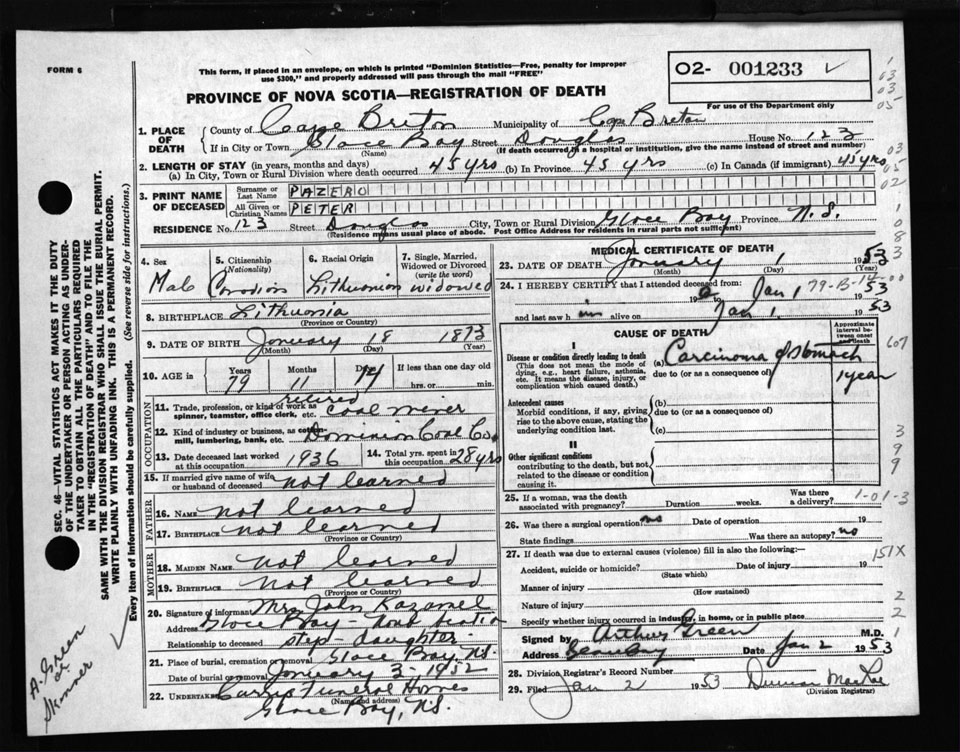 FORM 6
This form, if placed in an envelope, on which is printed "Dominion Statistics—Free, penalty for improper
use $300," and properly addressed will pass through the mail "FREE"
O2- 001233
For use of the Department only
PROVINCE OF NOVA SCOTIA—REGISTRATION OF DEATH
1. PLACE OF DEATH
County of Cape Breton Municipality of Cape Breton
If in City or Town Glace Bay Street Douglas House No. 123
(Name) (If death occurred in a hospital or institution, give the name instead of street and number)
2. LENGTH OF STAY (in years, months and days)
(a) In City, Town or Rural Division where death occurred 45 yrs (b) In Province 45 yrs (c) In Canada (if immigrant) 45 yrs
3. PRINT NAME OF DECEASED
Surname or Last Name PAZERO
All Given or Christian Names PETER
RESIDENCE No. 123 Street Douglas City, Town or Rural Division Glace Bay Province N.S.
(Residence means usual place of abode. Post Office Address for residents in rural parts not sufficient)
4. Sex
Male
5. Citizenship (Nationality)
Canadian
6. Racial Origin
Lithuanian
7. Single, Married, Widowed or Divorced (write the word)
widowed
8. BIRTHPLACE Lithuania
(Province or Country)
9. DATE OF BIRTH January 18 1873
(Month) (Day) (Year)
10. AGE in Years Months Days If less than one day old
79 11 14 hrs. or min.
OCCUPATION
retired
11. Trade, profession, or kind of work as spinner, teamster, office clerk, etc. coal miner
12. Kind of industry or business, as cotton-mill, lumbering, bank, etc. Dominion Coal Co.
13. Date deceased last worked at this occupation 1936
14. Total yrs. spent in this occupation 28 yrs
15. If married give name of wife or husband of deceased not learned
FATHER
16. NAME not learned
17. BIRTHPLACE not learned
(Province or Country)
MOTHER
18. MAIDEN NAME not learned
19. BIRTHPLACE not learned
(Province or Country)
20. Signature of informant Mrs John Kazanel
Address Glace Bay - Nova Scotia
Relationship to deceased step-daughter
21. Place of burial, cremation or removal Glace Bay N.S.
Date of burial or removal January 3 - 1952
22. Undertaker Currys Funeral Homes
(Name and address)
Glace Bay, N.S.
MEDICAL CERTIFICATE OF DEATH
23. DATE OF DEATH January 1 1953
(Month) (Day) (Year)
24. I HEREBY CERTIFY that I attended deceased from:
19 to Jan 1, 1953
79-B-14-00
and last saw him alive on Jan 1. 1953
CAUSE OF DEATH
Approximate interval between onset and death
I
Disease or condition directly leading to death
(This does not mean the mode of dying, e.g., heart failure, asthenia, etc. It means the disease, injury, or complication which caused death.)
(a) Carcinoma of stomach
due to (or as a consequence of) 1 year
Antecedent causes
Morbid conditions, if any, giving rise to the above cause, stating the underlying condition last.
(b)
due to (or as a consequence of)
(c)
II
Other significant conditions
contributing to the death, but not related to the disease or condition causing it.
25. If a woman, was the death associated with pregnancy? Duration weeks. Was there a delivery?
1-01-3
26. Was there a surgical operation? no Date of operation 19
State findings Was there an autopsy? no
27. If death was due to external causes (violence) fill in also the following:—
151X
Accident, suicide or homicide? Date of injury 19
(State which)
Manner of injury
(How sustained)
Nature of injury
Specify whether injury occurred in industry, in home, or in public place
Signed by Arthur Green M.D.
Address Glace Bay Date Jan 2 1953
28. Division Registrar's Record Number
29. Filed Jan 2 1953 Duncan MacRae
(Division Registrar)
SEC. 46—VITAL STATISTICS ACT MAKES IT THE DUTY
OF THE UNDERTAKER OR PERSON ACTING AS UNDER-
TAKER TO OBTAIN ALL THE PARTICULARS REQUIRED
IN THE "REGISTRATION OF DEATH" AND TO FILE THE
SAME WITH THE DIVISION REGISTRAR WHO SHALL ISSUE THE BURIAL PERMIT.
WRITE PLAINLY WITH UNFADING INK. THIS IS A PERMANENT RECORD.
Every item of information should be carefully supplied. (See reverse side for instructions.)
A. Green
or
Skinner
1
03
03
05
03
05
02
1
0
8
3
607
3
9
9
2
2
1